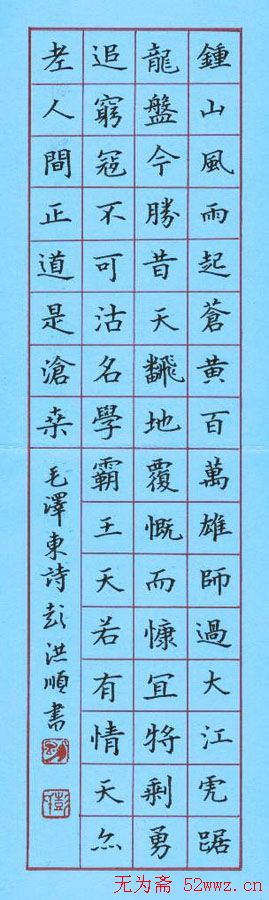 鍾山風雨起蒼黃百萬雄師過大江虎踞
龍盤今勝昔天飜地覆慨而慷冝將剩勇
追窮冦不可沽名學霸王天若有情天亦
老人間正道是滄桒
毛澤東詩彭洪順書
无为斋 52wwz.cn